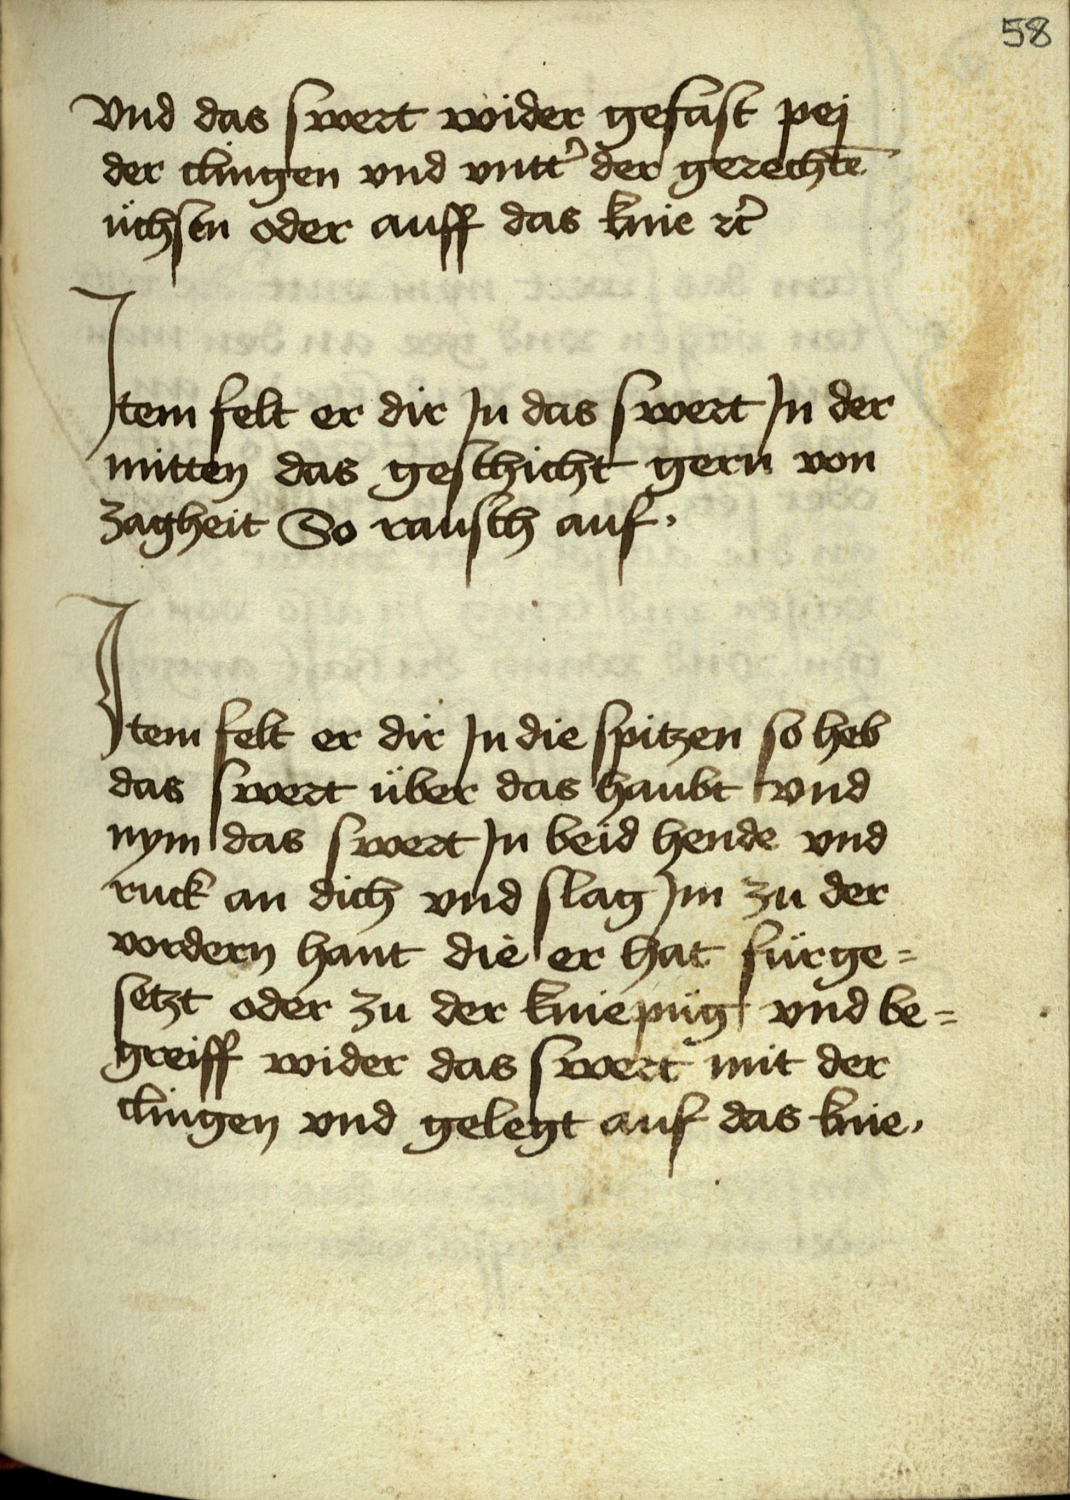 58
vnd das swert wider gefast pei
der clingen vnd vntt' der gerechtē
üchsen oder auff das knie ꝛc̄
Item felt er dir Jn das swert Jn der
mitten das geschicht gern von
zagheit So rausch auf.
Item felt er dir Jn die spitzen so heb
das swert über das haubt vnd
nym das swert Jn beid hende vnd
ruck an dich vnd slag Jm zu der
vordern hant die er hat fürge=
setzt oder zu der kniepüg vnd be=
greiff wider das swert mit der
clingen vnd gelegt auf das knie.